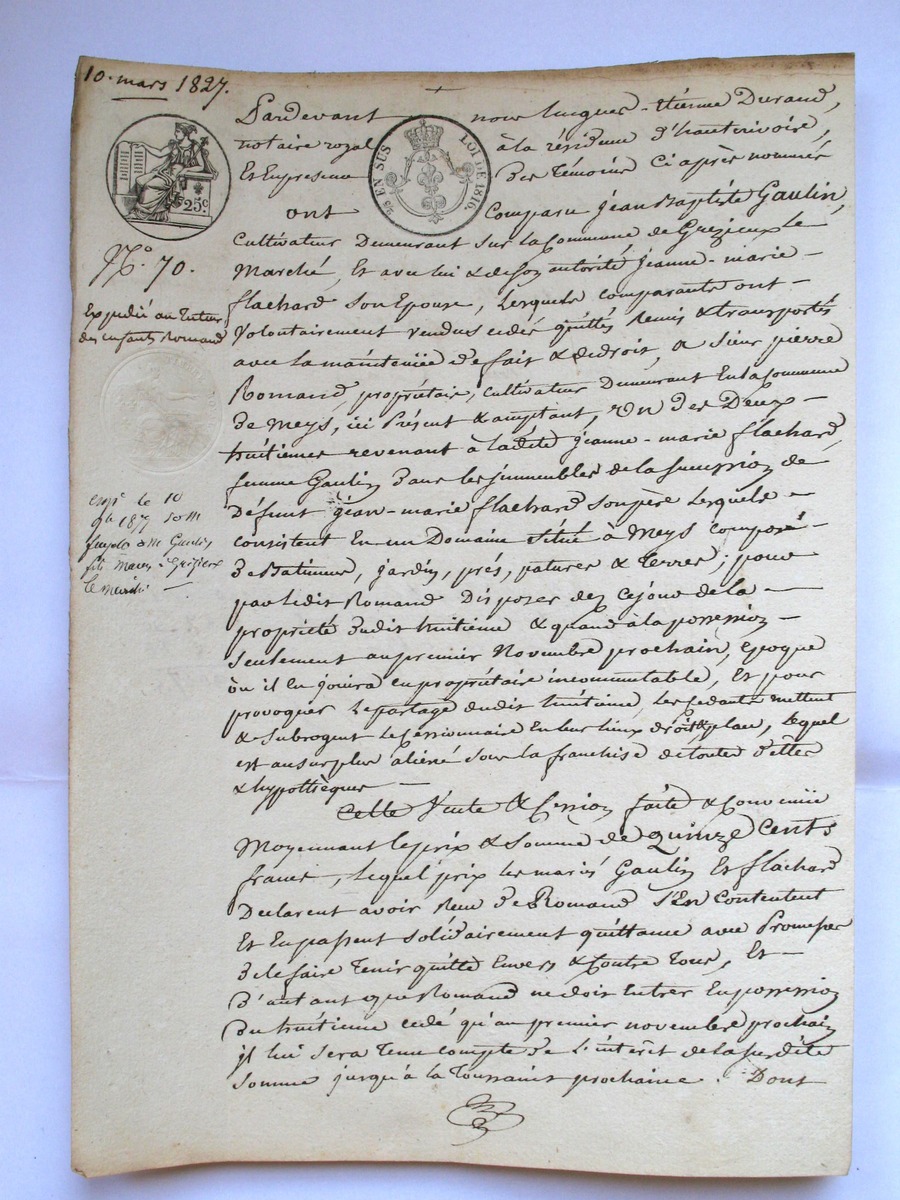 10. mars 1827.
Pardevant nous Jacques-étienne Durand,
notaire royal à la résidence d'hauterivoire,
Et En presence des Témoins Ci après nommés
25 EN SUS LOI DE 1816.
25c
ont Comparu jéan Baptiste Gaulin,
Cultivateur Demeurant sur la Commune de Grezieux Le
N.º 70.
Marché, Et avec lui & de son autorité jeanne-marie-
flachard son Epouse, Lesquels comparants ont-
Expedié au tuteur
des enfants Romand
Volontairement vendus cédés quittés Remis & transportés
avec la maintenüe de fait & de droit, a Sieur pierre
Romand propriétaire, Cultivateur Demeurant En la Commune
de Meys, ici Présent & acceptant, Un des Deux-
huitiemes revenant à ladite jeanne-marie flachard
femme Gaulin dans les immeubles de la succession de
Défunt jéan-marie flachard son père Lesquels-
Consistent En un Domaine Situé à Meys Composé-
de Batimens, jardin, prés, patures & Terres; pour
exp.e le 10
1877
Gaulin
le marché
par ledit Romand Disposer dez Cejour de la-
propriété dudit huitieme & quand à la possession-
Seulement au premier Novembre prochain, époque
où il En jouira en propriétaire incommutable, Et pour
provoquer Le partage dudit huitieme, Les Cedants mettent
& subrogent Le Cessionnaire En leur lieux droit & place, Lequel
est au surplus aliéné sous la franchise de toutes dettes
& hypothèques-
Cette Vente & Cession faite & Convenüe
Moyennant le prix & Somme de Quinze Cents
francs, Lequel prix les mariés Gaulin Et flachard
Declarent avoir Reçu de Romand S'En Contentent
Et En passent solidairement quittance avec Promesse
de le faire Tenir quitte Envers & Contre Tous, Et-
d'autant que Romand ne doit Entrer En possession
du huitieme cédé qu'au premier novembre prochain
il lui sera Tenu compte de L'intérêt de la susdite
somme jusqu'à la Toussaint prochaine. Dont